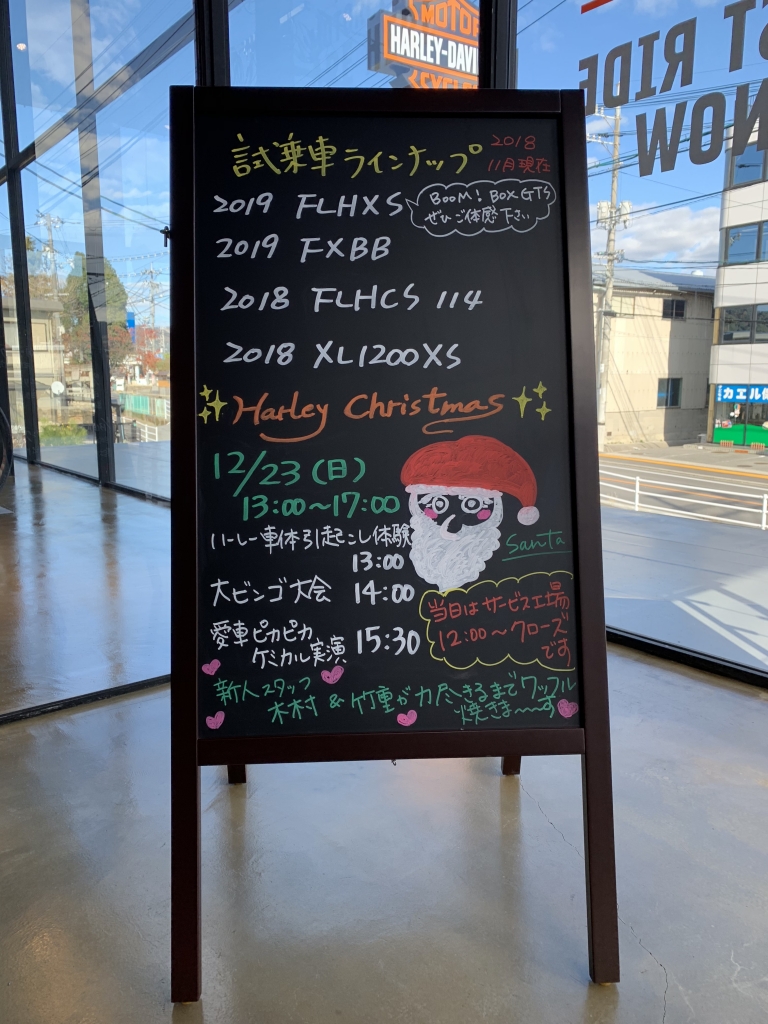 MOTOR
HARLEY-DAVI
CYCLES
ST RIDE
NOW
カエル
試乗車ラインナップ
2018
11月現在
2019 FLHXS
BOOM! BOX GTS
ぜひご体感下さい
2019 FXBB
2018 FLHCS 114
2018 XL1200XS
Harley Christmas
12/23(日)
13:00~17:00
ハーレー車体引起こし体験
13:00
Santa
大ビンゴ大会 14:00
愛車ピカピカ
ケミカル実演 15:30
当日はサービス工場
12:00~クローズ
です
新人スタッフ
木村 & 竹重が力尽きるまでワッフル
焼きま~~す